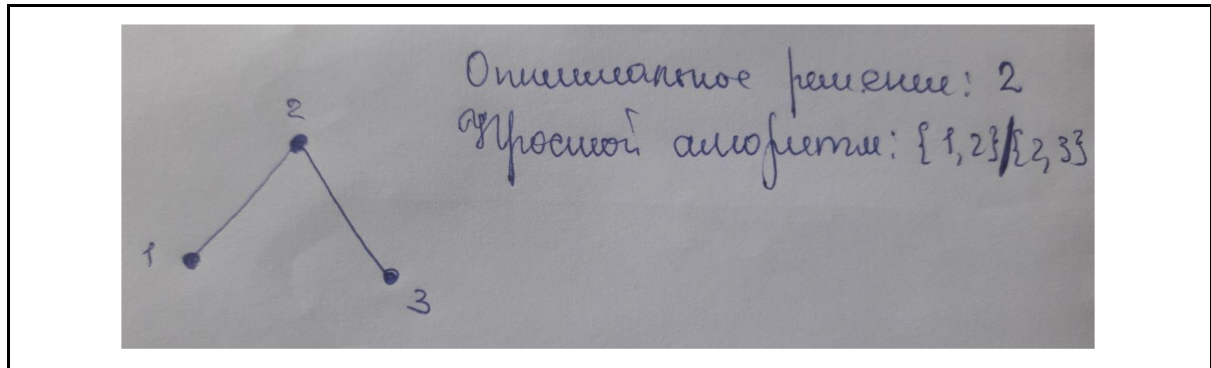 Оптимальное решение: 2
Простой алгоритм: {1,2}/{2,3}
2
1
3